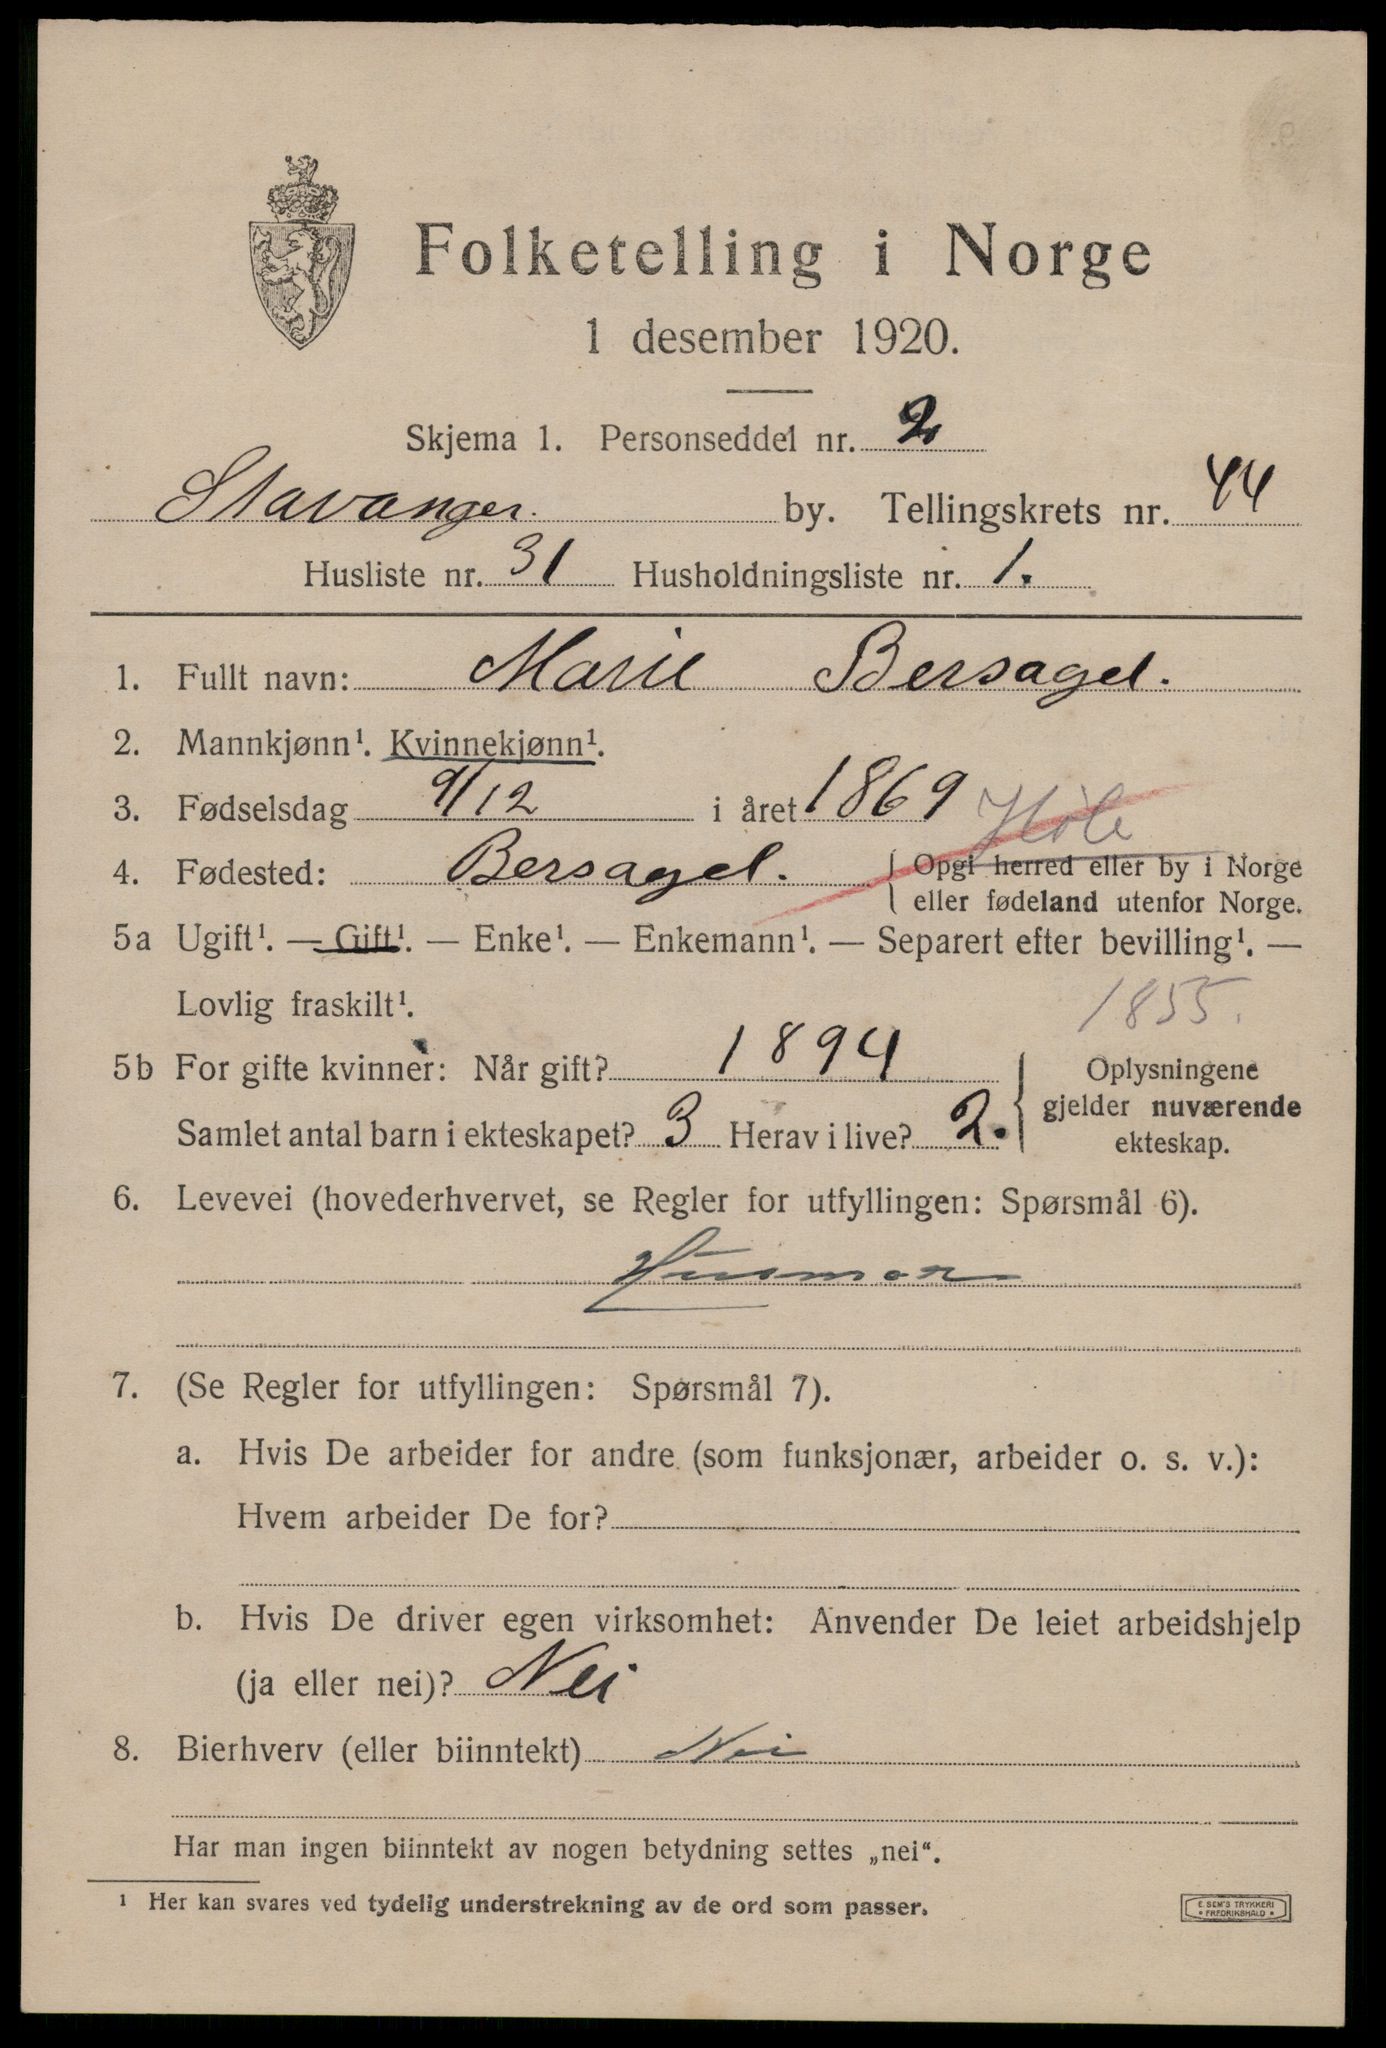 Folketelling i Norge
1 desember 1920.
Skjema 1. Personseddel nr. 2
Stavanger. by. Tellingskrets nr. 44
Husliste nr. 31 Husholdningsliste nr. 1.
1. Fullt navn: Marie Bersagel.
2. Mannkjønn¹. Kvinnekjønn¹.
3. Fødselsdag 9/12 i året 1869
Høle
4. Fødested: Bersagel. { Opgi herred eller by i Norge
eller fødeland utenfor Norge.
5a Ugift¹. — Gift¹. — Enke¹. — Enkemann¹. — Separert efter bevilling¹. —
Lovlig fraskilt¹.
1855.
5b For gifte kvinner: Når gift? 1894
Samlet antal barn i ekteskapet? 3 Herav i live? 2.
Oplysningene
gjelder nuværende
ekteskap.
6. Levevei (hovederhvervet, se Regler for utfyllingen: Spørsmål 6).
Husmor
7. (Se Regler for utfyllingen: Spørsmål 7).
a. Hvis De arbeider for andre (som funksjonær, arbeider o. s. v.):
Hvem arbeider De for?
b. Hvis De driver egen virksomhet: Anvender De leiet arbeidshjelp
(ja eller nei)? Nei
8. Bierhverv (eller biinntekt) Nei
Har man ingen biinntekt av nogen betydning settes „nei“.
¹ Her kan svares ved tydelig understrekning av de ord som passer.
E. SEM'S TRYKKERI
• FREDRIKSHALD •